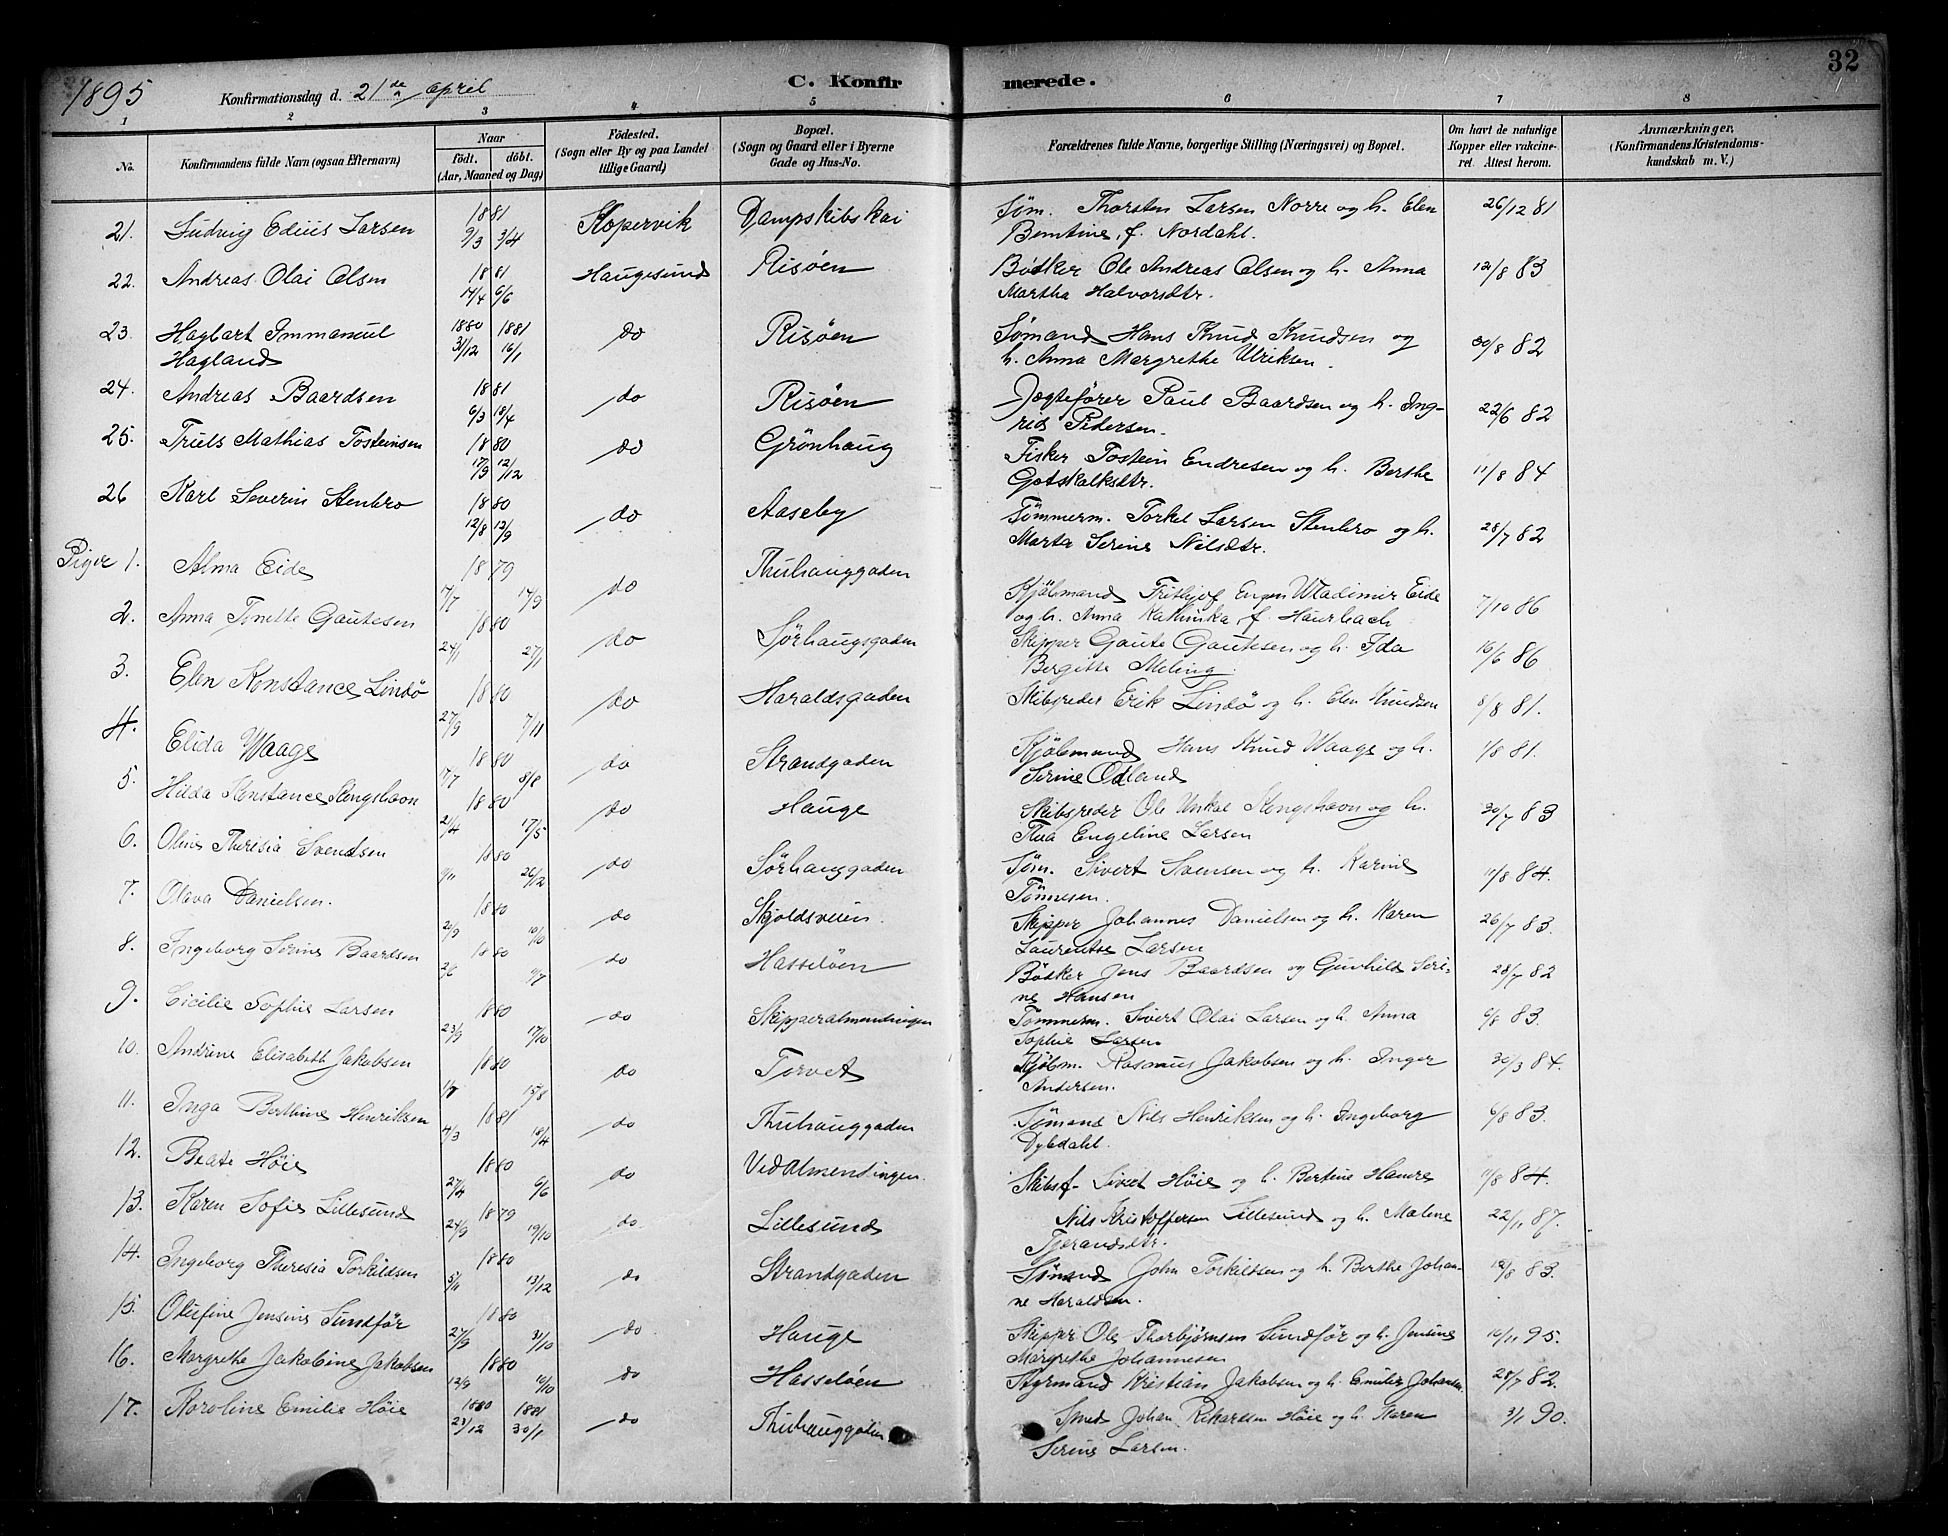 32
1895 Konfirmationsdag d. 21de April C. Konfirmerede.
1 2 3 4 5 6 7 8
No. Konfirmandens fulde Navn (ogsaa Efternavn) Naar født. døbt. (Aar, Maaned og Dag) Fødested. (Sogn eller By og paa Landet tillige Gaard) Bopæl. (Sogn og Gaard eller i Byerne Gade og Hus-No. Forældrenes fulde Navne, borgerlige Stilling (Næringsvei) og Bopæl. Om havt de naturlige Kopper eller vakcineret. Attest herom. Anmærkninger, (Konfirmandens Kristendomskundskab m. V.)
21. Ludvig Edius Larsen 1881 9/3 3/4 Kopervik Dampskibskai Søm. Thorsten Larsen Norre og h. Elen Berntine, f. Nordahl. 26/12 81
22. Andreas Olai Olsen 1881 14/4 6/6 Haugesund Risøen Bødker Ole Andreas Olsen og h. Anna Martha Halvorsdtr. 12/8 83
23. Hagbart Immanuel Hagland 1880 31/12 1881 16/1 do Risøen Sømand Hans Knud Knudsen og h. Anna Margrethe Ulriksen. 30/8 82
24. Andreas Baardsen 1881 6/3 18/4 do Risøen Jægtefører Paul Baardsen og h. Ingred Pedersen. 22/6 82
25. Truls Mathias Tosteinsen 1880 17/9 12/12 do Grønhaug Fisker Tostein Endresen og h. Berthe Gotskalksdtr. 11/8 84
26 Karl Severin Stenbro 1880 12/8 12/9 do Aaseby Tømmerm. Torkel Larsen Stenbro og h. Marta Serine Nilsdtr. 28/7 82
Piger 1. Alma Eide 1879 17/7 14/9 do Thuhauggaden Kjøbmand Frithjof Eugen Wladimir Eide og h. Anna Kathinka, f. Haurbach 7/10 86
2. Anna Tonette Gautesen 1880 24/1 27/1 do Sørhaugsgaden Skipper Gaute Gautesen og h. Ida Bergitte Meling. 16/6 86
3. Elen Konstance Lindø 1880 27/9 7/11 do Haraldsgaden Skibsreder Erik Lindø og h. Elen Knudsen 8/8 81.
4. Elida Waage 1880 17/7 8/8 do Strandgaden Kjøbmand Hans Knud Waage og h. Serine Odland 1/8 81.
5. Hilda Konstance Kongshavn 1880 21/4 17/5 do Hauge Skibsreder Ole Unkal Kongshavn og h. Thea Engeline Larsen 30/7 83
6. Oline Theresia Svendsen 1880 9/11 26/12 do Sørhauggaden Søm. Sivert Svensen og h. Karine Tønnesen. 11/8 84.
7. Olava Danielsen. 1880 20/9 10/10 do Skjoldsveien Skipper Johannes Danielsen og h. Karen Laurentse Larsen 26/7 83.
8. Ingeborg Serine Baardsen 1880 do Hasseløen Bødker Jens Baardsen og Gunhild Serine Hansen 28/7 82
9. Cicilie Sophie Larsen 1880 23/9 17/10 do Skipperalmendingen Tømmerm. Sivert Olai Larsen og h. Anna Sophie Larsen 6/8 83.
10. Andrine Elisabeth Jakobsen 1880 15/8 do Torvet Kjøbm. Rasmus Jakobsen og h. Inger Andersen. 30/3 84.
11. Inga Berthine Henriksen 1881 4/3 18/4 do Thuhauggaden Sømand Nils Henriksen og h. Ingeborg Dybdahl. 6/8 83.
12. Beate Høie 1880 27/4 6/6 do Vedalmendingen. Skibsf. Sivert Høie og h. Bertine Hamre 11/8 84.
13. Karen Sofie Lillesund 1879 24/9 19/10 do Lillesund Nils Kristoffersen Lillesund og h. Malene Tjerandsdtr. 22/11 87.
14. Ingeborg Theresia Torkildsen 1880 5/11 13/12 do Strandgaden Sømand John Torkildsen og h. Berthe Johanne Haraldsen. 12/8 83.
15. Olufine Jensine Sundfør 1880 27/9 31/10 do Hauge Skipper Ole Thorbjørnsen Sundfør og h. Jensine Margrethe Johannesen 10/11 95.
16. Margrethe Jakobine Jakobsen 1880 12/9 10/10 do Hasseløen Styrmand Kristian Jakobsen og h. Emilie Johansen. 28/7 82.
17. Karoline Emilie Høie 1880 23/12 1881 30/1 do Thuhauggaden Smed Johan Rikardsen Høie og h. Karen Serine Larsen. 3/1 90.